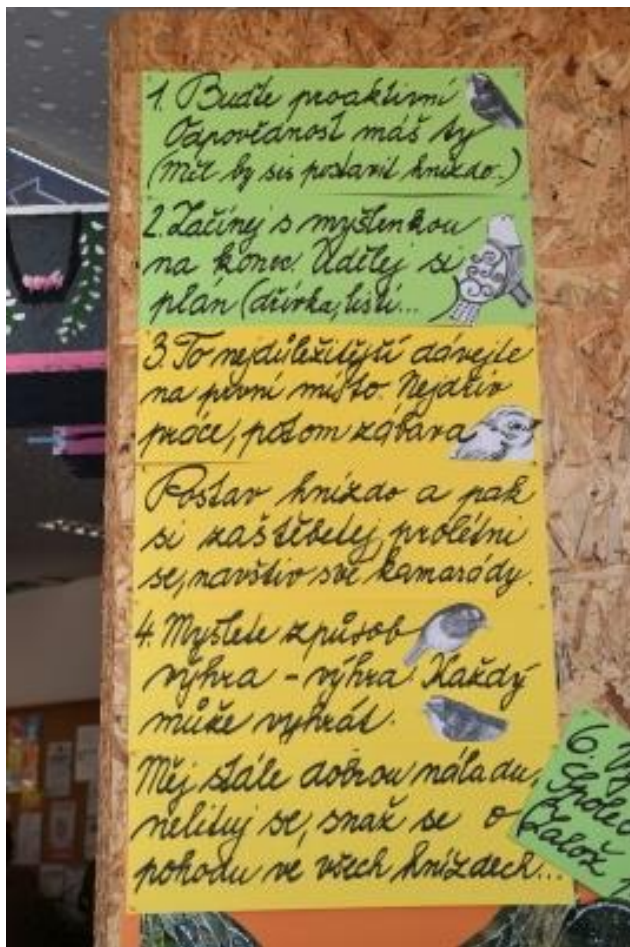 1. Buďte proaktivní
Odpovědnost máš ty
(Měl by sis postavit hnízdo.)
2. Začínej s myšlenkou
na konec. Udělej si
plán (dřívka, listí...
3. To nejdůležitější dávejte
na první místo. Nejdřív
práce, potom zábava
Postav hnízdo a pak
si zaštěbetej, prolétni
se, navštiv své kamarády.
4. Myslete způsob
výhra - výhra. Každý
může vyhrát.
Měj stále dobrou náladu,
nelituj se, snaž se o
pohodu ve všech hnízdech...
6.
Založ